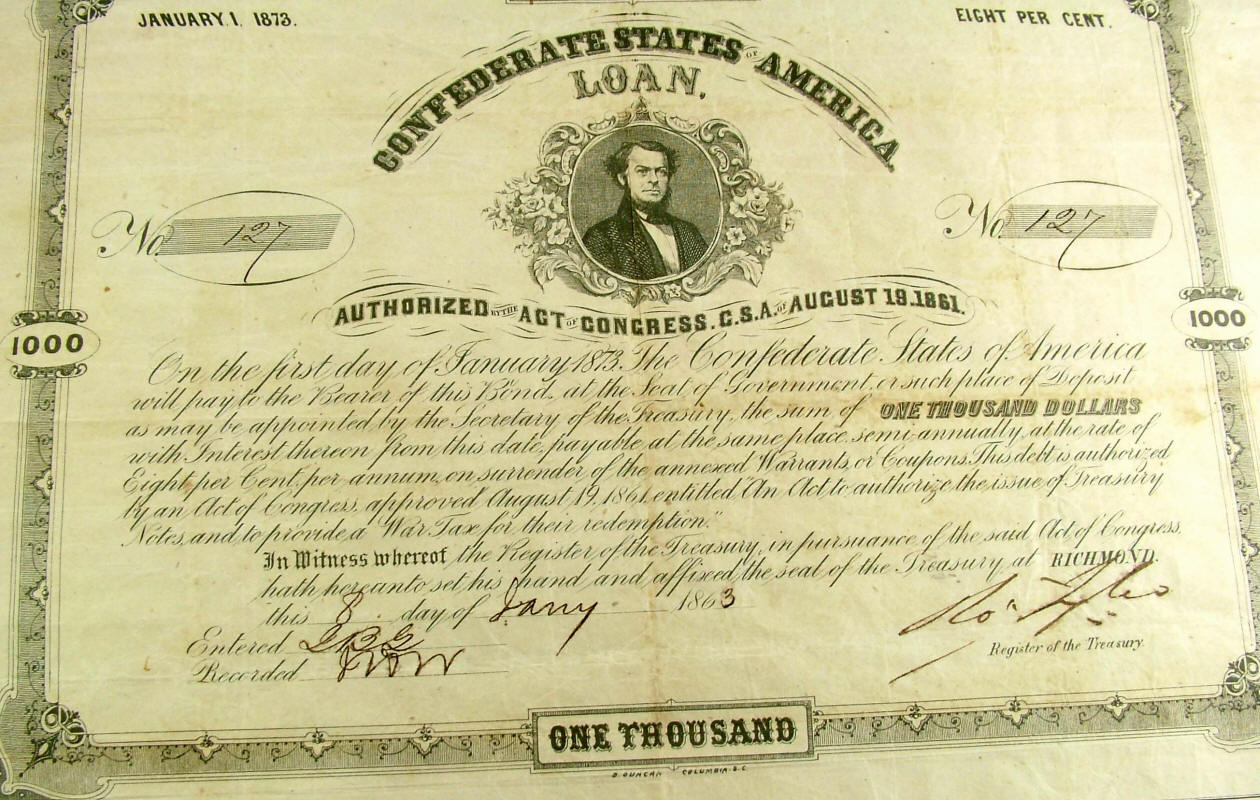 JANUARY. 1, 1873.
EIGHT PER CENT.
CONFEDERATE STATES OF AMERICA.
LOAN.
No. 127
No. 127
AUTHORIZED BY THE ACT OF CONGRESS. C.S.A. OF AUGUST 19. 1861.
1000
1000
On the first day of January 1873. The Confederate States of America
will pay to the Bearer of this Bond, at the Seat of Government, or such place of Deposit
as may be appointed by the Secretary of the Treasury, the sum of ONE THOUSAND DOLLARS
with Interest thereon from this date, payable at the same place, semi-annually, at the rate of
Eight per Cent. per annum, on surrender of the annexed Warrants, or Coupons. This debt is authorized
by an Act of Congress, approved August 19. 1861, entitled "An Act to authorize the issue of Treasury
Notes, and to provide a War Tax for their redemption."
In Witness whereof the Register of the Treasury, in pursuance of the said Act of Congress,
hath hereunto set his hand and affixed the seal of the Treasury, at RICHMOND.
this 8 day of Jany 1863
Entered
Recorded
Register of the Treasury.
ONE THOUSAND
D. DUNCAN COLUMBIA. S.C.